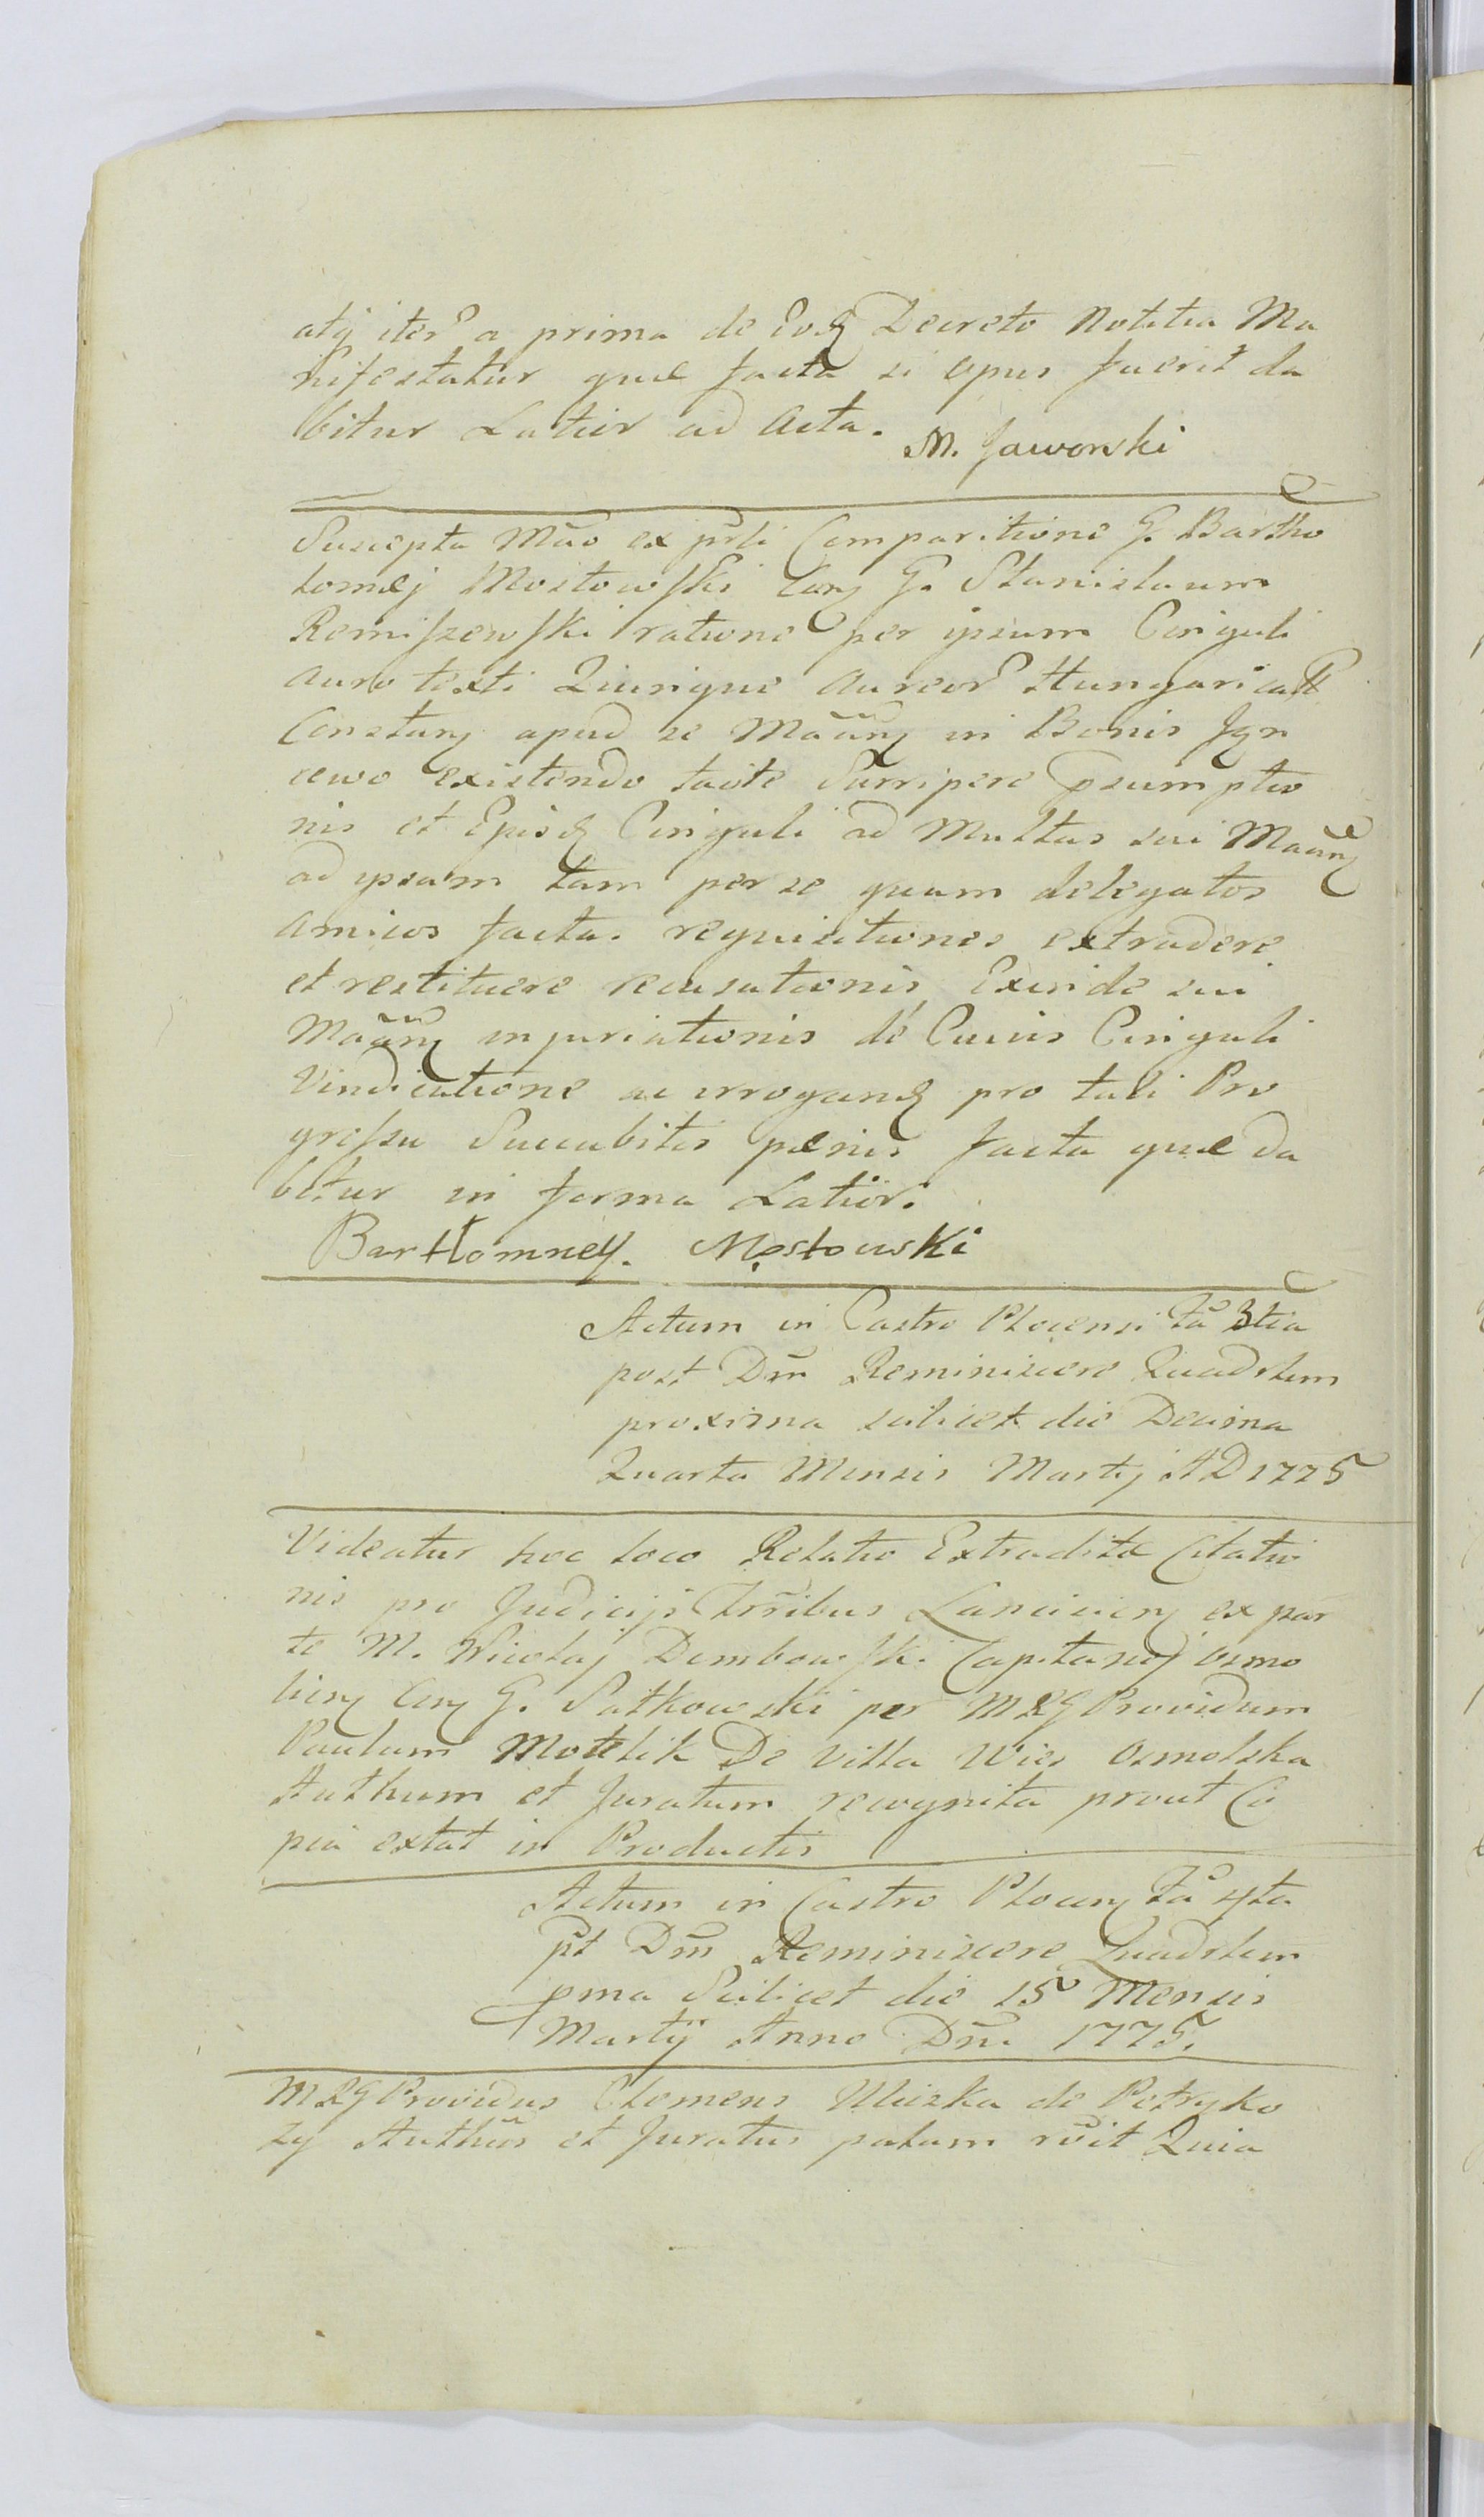 atq iter a prima de Eodq Decreto Notitia Ma
nifestatur quæ facta si opus fuerit da
bitur Latior ad Acta.
M. Jaworski
Suscepta Mão ex prsli Comparitione G. Bartho
lomæj Mostowski Con G. Stanislaum
Remiszewski ratione per ipsum Cinguli
auro texti Quinque Aureor Hungarical
Constan apud se Mãan in Bonis
cewo existendo tacite Surripere Psumptio
nis et Cinguli ad Multas sui Mãan
ad ipsum tam per se quam delegatos
Amicos factas requisitiones extradere
et restituere recusationis Exinde sui
Mãan injuriationis dé Cuius Cinguli
Vindicatione ac irrogand pro tali Pro
gressu Succubitis pænis facta quæ da
bitur in forma Latiör.
Barttomney. Mostowski
Actum in Castro Plocensi Fã 3tia
post Dm̃ Reminiscere Quadrlem
proxima scilicet die Decima
Quarta Mensis Martij AD 1775
Videatur hoc loco Relatio Extraditæ Citatio
nis pro Judicijs Trr̃ibus Lanciciens ex par
te M. Nicolaj Dembowski Capitanej Osmo
licen Con G. Sutkowski per M&G Providum
Paulum Motelik De Villa Wies Osmolska
Authum et Juratum recognita prout Co
pia extat in Productis
Actum in Castro Plocen Fã 4ta
p̃t Dm̃ Reminiscere Quadrlem
pma Scilicet die 15 Mensis
Martÿ Anno Dñi 1775.
M&G Providus Clemens Mliczka de Petryko
zy Authũs et Juratus palam rc̃it Quia